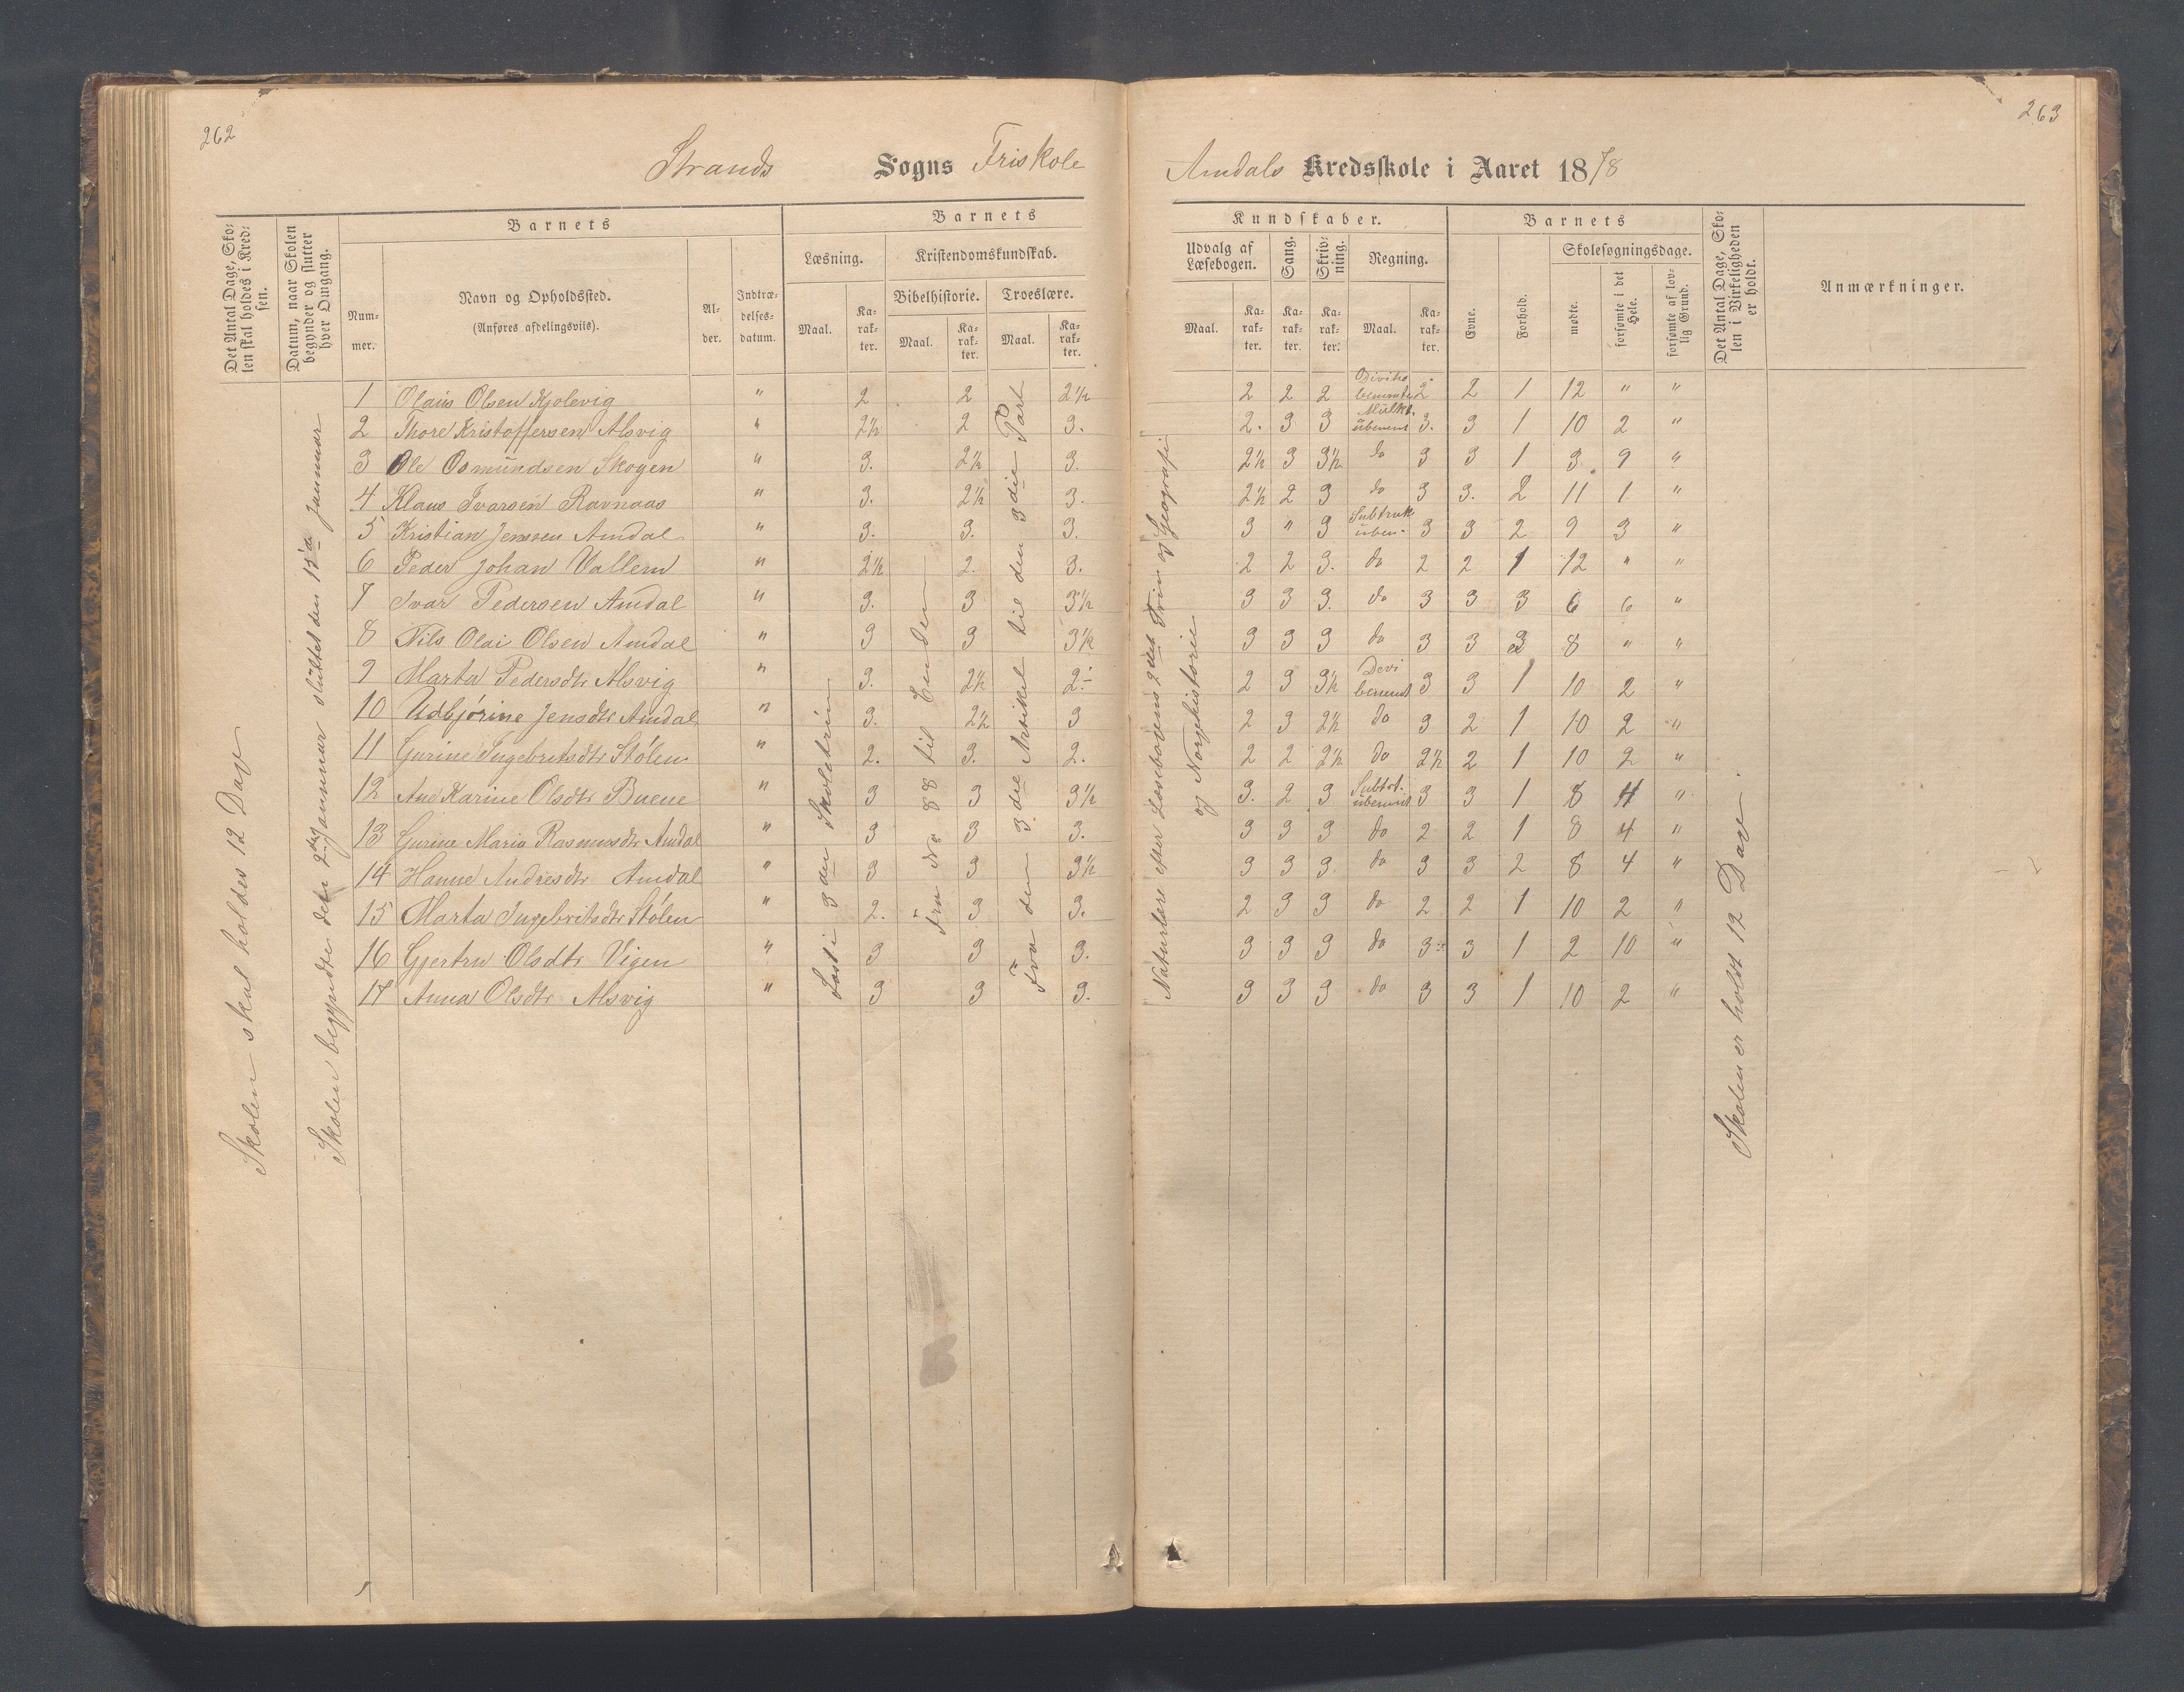 262
Strands Sogns Friskole
Det Antal Dage, Sko-
len skal holdes i Kred-
sen.
Datum, naar Skolen
begynder og slutter
hver Omgang.
Barnets
Num-
mer.
Navn og Opholdssted.
(Anføres afdelingsviis).
Al-
der.
Indtræ-
delses-
datum.
Barnets
Læsning.
Kristendomskundskab.
Bibelhistorie.
Troeslære.
Maal.
Ka-
rak-
ter.
Maal.
Ka-
rak-
ter.
Maal.
Ka-
rak-
ter.
Skolen skal holdes 12 Dage
Skolen begyndte den 2den Januar sluttet den 15de Januar
Læst i 3die Skoletrin
Fra No 88 til Enden
Fra den 3die Artikel til den 3die Part
1 Olaus Olsen Kjolevig " 2 2 2½
2 Thore Kristoffersen Alsvig " 2½ 2 3.
3 Ole Osmundsen Skogen " 3. 2½ 3.
4 Klaus Ivarsen Ravnaas " 3. 2½ 3.
5 Kristian Jenssen Amdal " 3. 3. 3.
6 Peder Johan Vallem " 2½ 2. 3.
7 Ivar Pedersen Amdal " 3. 3 3½
8 Nils Olai Olsen Amdal " 3 3 3½
9 Marta Pedersdtr Alsvig " 3. 2½ 2.-
10 Udbjørine Jensdtr Amdal " 3. 2½ 3
11 Gurine Ingebretsdtr Stølen " 2. 3. 2.
12 Ane Karine Olsdtr Buene " 3 3 3½
13 Gurine Maria Rasmusdtr Amdal " 3 3 3.
14 Hanne Andresdtr Amdal " 3 3 3½
15 Marta Ingebritsdtr Stølen " 2. 3 3.
16 Gjertru Olsdtr Vigen " 3 3 3.
17 Anna Olsdtr Alsvig " 3 3 3.
263
Amdals Kredsskole i Aaret 1878
Kundskaber.
Udvalg af
Læsebogen.
Sang.
Skriv-
ning.
Regning.
Maal.
Ka-
rak-
ter.
Ka-
rak-
ter.
Ka-
rak-
ter.
Maal.
Ka-
rak-
ter.
Barnets
Evne.
Forhold.
Skolesøgningsdage.
mødte.
forsømte i det
Hele.
forsømte af lov-
lig Grund.
Det Antal Dage, Sko-
len i Virkeligheden
er holdt.
Anmærkninger.
Naturlære efter Læsebogens 2det Trin og Geografi
og Norgehistorie
2 2 2 2 2 1 12 " "
2. 3 3 3. 3 1 10 2 "
2½ 3 3½ do 3 3 1 3. 9 "
2½ 2 3 do 3 3. 2 11 1 "
3 " 3 3 3 2 9 3 "
2 2 3. do 2 2 1 12 " "
3 3 3. do 3 3 3 6 6 "
3 3 3 do 3 3 3 8 " "
2 3 3½ 3 3 1 10 2 "
2 3 2½ do 3 2 1 10 2 "
2 2 2½ do 2½ 2 1 10 2 "
3. 2 3 3 3 1 8 4 "
3 3 3 do 2 2 1 8 4 "
3 3 3 do 3 3 2 8 4 "
2 3 3 do 2 2 1 10 2 "
3 3 3 do 3 3 1 2 10 "
3 3 3 do 3 3 1 10 2 "
Skolen er holdt 12 Dage.